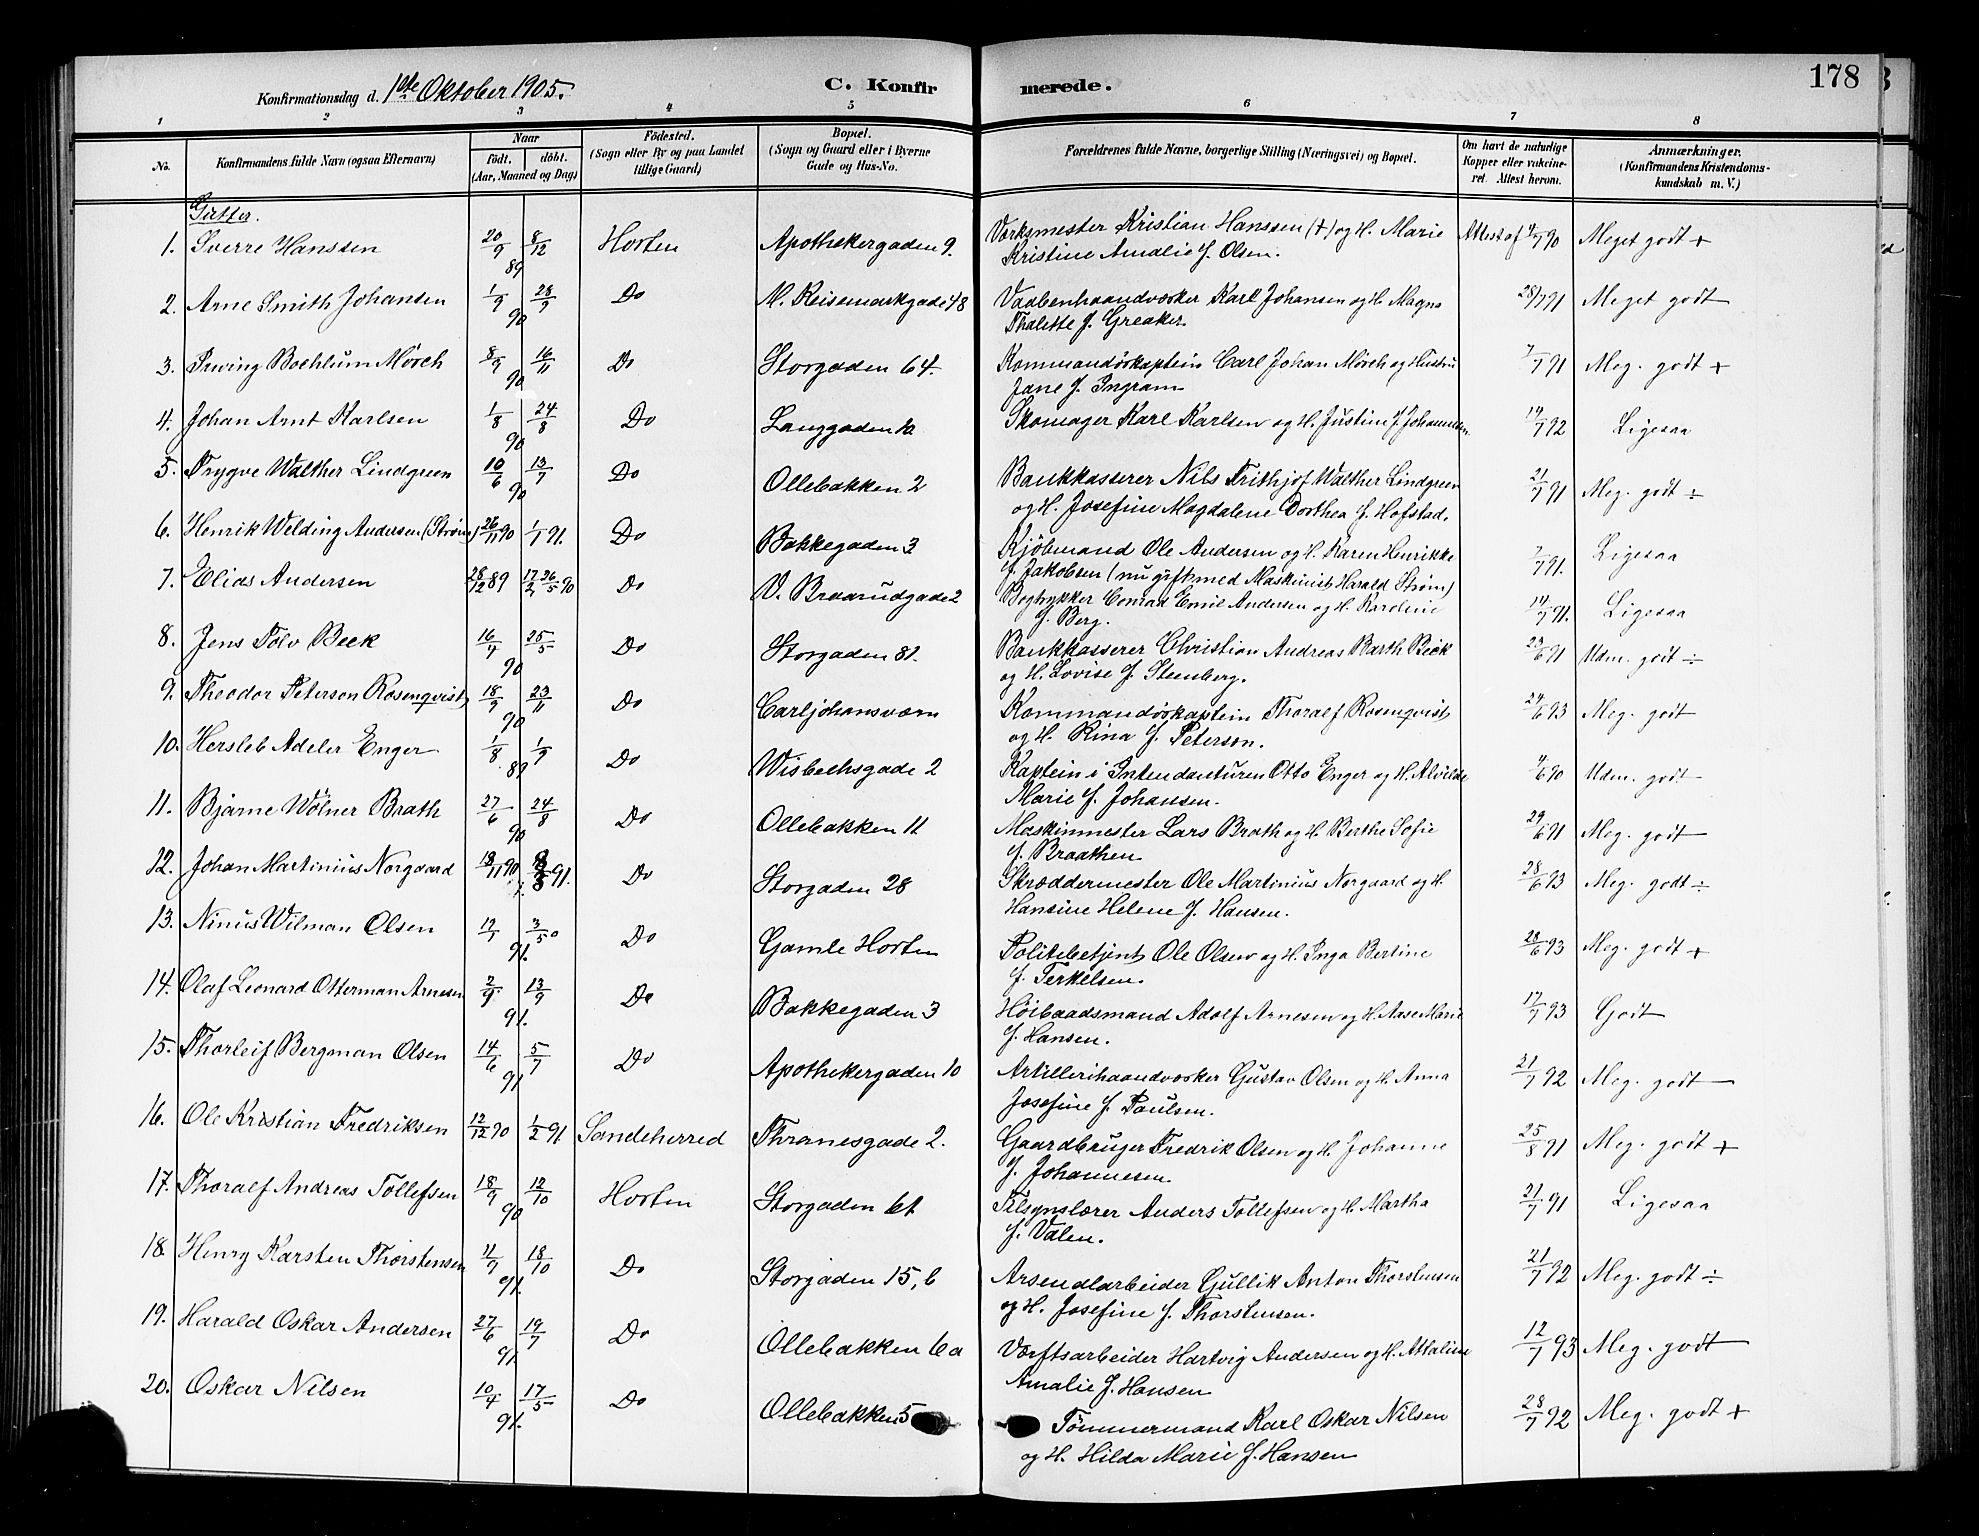 178
Konfirmationsdag d. 1ste Oktober 1905. C. Konfirmerede.
1 2 3 4 5 6 7 8
No. Konfirmandens fulde Navn (ogsaa Efternavn) Naar født. døbt. (Aar, Maaned og Dag) Fødested. (Sogn eller By og paa Landet tillige Gaard) Bopæl. (Sogn og Gaard eller i Byerne Gade og Hus-No. Forældrenes fulde Navne, borgerlige Stilling (Næringsvei) og Bopæl. Om havt de naturlige Kopper eller vakcineret. Attest herom. Anmærkninger. (Konfirmandens Kristendomskundskab m. V.)
Gutter.
1. Sverre Hanssen 20/9 89 8/12 Horten Apothekergaden 9. Værksmester Kristian Hanssen (+) og H. Marie Attest af 90 Meget godt +
Kristine Amalie f. Olsen.
2. Arne Smith Johansen 1/9 90 28/9 Do N. Reisemarkgade 48 Vaabenhaandværker Karl Johansen og H. Magna 28/7 91 Meget godt
Thalette f. Greaker
3. Irving Bochlum Mörch 8/9 90 16/11 Do Storgaden 64. Kommandörkaptein Carl Johan Mörch og Hustru 91 Meg. godt +
Jane f. Ingram
4. Johan Arnt Karlsen 1/8 90 24/8 Do Langgaden Skomager Karl Karlsen og H. Justine f Johannesen 14/7 92 Ligesaa
5. Trygve Walther Lindgreen 10/6 90 13/7 Do Ollebakken 2 Bankkasserer Nils Frithjof Walther Lindgreen 21/7 91 Meg. godt ÷
og H. Josefine Magdalene Dorthea f. Hofstad.
6. Henrik Welding Andersen (Strøm) 26/11 90 1/1 91. Do Bakkegaden 3 Kjöbmand Ole Andersen og H. Karen Henrikke 91. Ligesaa
f. Jakobsen (nu gift med Maskinist Harald Strøm)
7. Elias Andersen 28/12 89 17/2 26/5 90 Do V. Braarudgade 2 Bogtrykker Conrad Emil Andersen og H. Karoline 14/7 91. Ligesaa
f. Berg.
8. Jens Tolv Beck 16/4 90 25/5 Do Storgaden 81. Bankkasserer Christian Andreas Barth Beck 23/6 91 Udm. godt ÷
og H. Lovise f Steenberg.
9. Theodor Peterson Rosenqvist 18/9 90 23/11 Do Carljohansværn Kommandörkaptein Thoralf Rosenqvist 24/6 93 Meg. godt
og H. Rina f. Peterson.
10. Hersleb Adeler Enger 1/8 89 1/9 Do Wisbechsgade 2 Kaptein i Intendanturen Otto Enger og H. Alvilde 90 Udm. godt
Marie f. Johansen.
11. Bjarne Wölner Brath 27/6 90 24/8 Do Ollebakken 11 Maskinmester Lars Brath og H. Berthe Sofie 29/6 91 Meg. godt
f. Braathen
12. Johan Martinius Norgaard 18/11 90 91. Do Storgaden 28 Skræddermester Ole Martinius Norgaard og H. 28/6 93 Meg. godt ÷
Hansine Helene f. Hansen.
13. Ninus Wilman Olsen 91. 3/5 Do Gamle Horten Politibetjent Ole Olsen og H. Inga Bertine 28/6 93 Meg. godt +
f. Terkelsen.
14. Olaf Leonard Otterman Arnesen 2/9 91. 13/9 Do Bakkegaden 3 Höibaadsmand Adolf Arnesen og H. Aase Marie 17/7 93 Godt
f. Hansen.
15. Thorleif Bergman Olsen 14/6 91 5/7 Do Apothekergaden 10 Artillerihaandværker Gustav Olsen og H. Anna 21/7 92 Meg. godt
Josefine f. Paulsen.
16. Ole Kristian Fredriksen 12/12 90 1/2 91 Sandeherred Thranesgade 2. Gaardbruger Fredrik Olsen og H. Johanne 25/8 91 Meg. godt +
f. Johannesen.
17. Thoralf Andreas Tollefsen 18/9 90 12/10 Horten Storgaden 61 Tilsynslærer Anders Tollefsen og H. Martha 21/7 91 Ligesaa
f. Valen.
18. Henry Karsten Thorstensen 11/9 91. 18/10 Do Storgaden 15, b Arsenalarbeider Gullik Anton Thorstensen 21/7 92 Meg. godt ÷
og H. Josefine f. Thorstensen.
19. Harald Oskar Andersen 27/6 91. 19/7 Do Ollebakken 6a Værftsarbeider Hartvig Andersen og H. Attaline 12/7 93 Meg. godt
Amalie f. Hansen
20. Oskar Nilsen 10/4 91. 17/5 Do Ollebakken 5 Tömmermand Karl Oskar Nilsen 28/7 92 Meg. godt +
og H. Hilda Marie f. Hansen